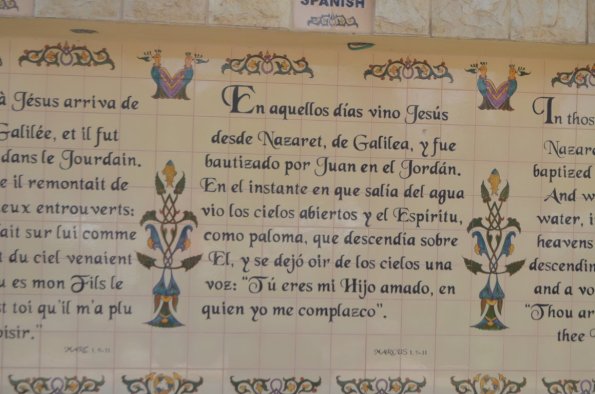 SPANISH
à Jésus arriva de
Galilée, et il fut
dans le Jourdain.
e il remontait de
eux entrouverts:
ait sur lui comme
t du ciel venaient
u es mon Fils le
st toi qu'il m'a plu
oisir."
MARC 1, 9-11
En aquellos días vino Jesús
desde Nazaret, de Galilea, y fue
bautizado por Juan en el Jordán.
En el instante en que salía del agua
vio los cielos abiertos y el Espíritu,
como paloma, que descendía sobre
Él, y se dejó oir de los cielos una
voz: "Tú eres mi Hijo amado, en
quien yo me complazco".
MARCUS 1, 9-11
In thos
Nazare
baptized
And w
water, i
heavens
descendin
and a vo
"Thou ar
thee